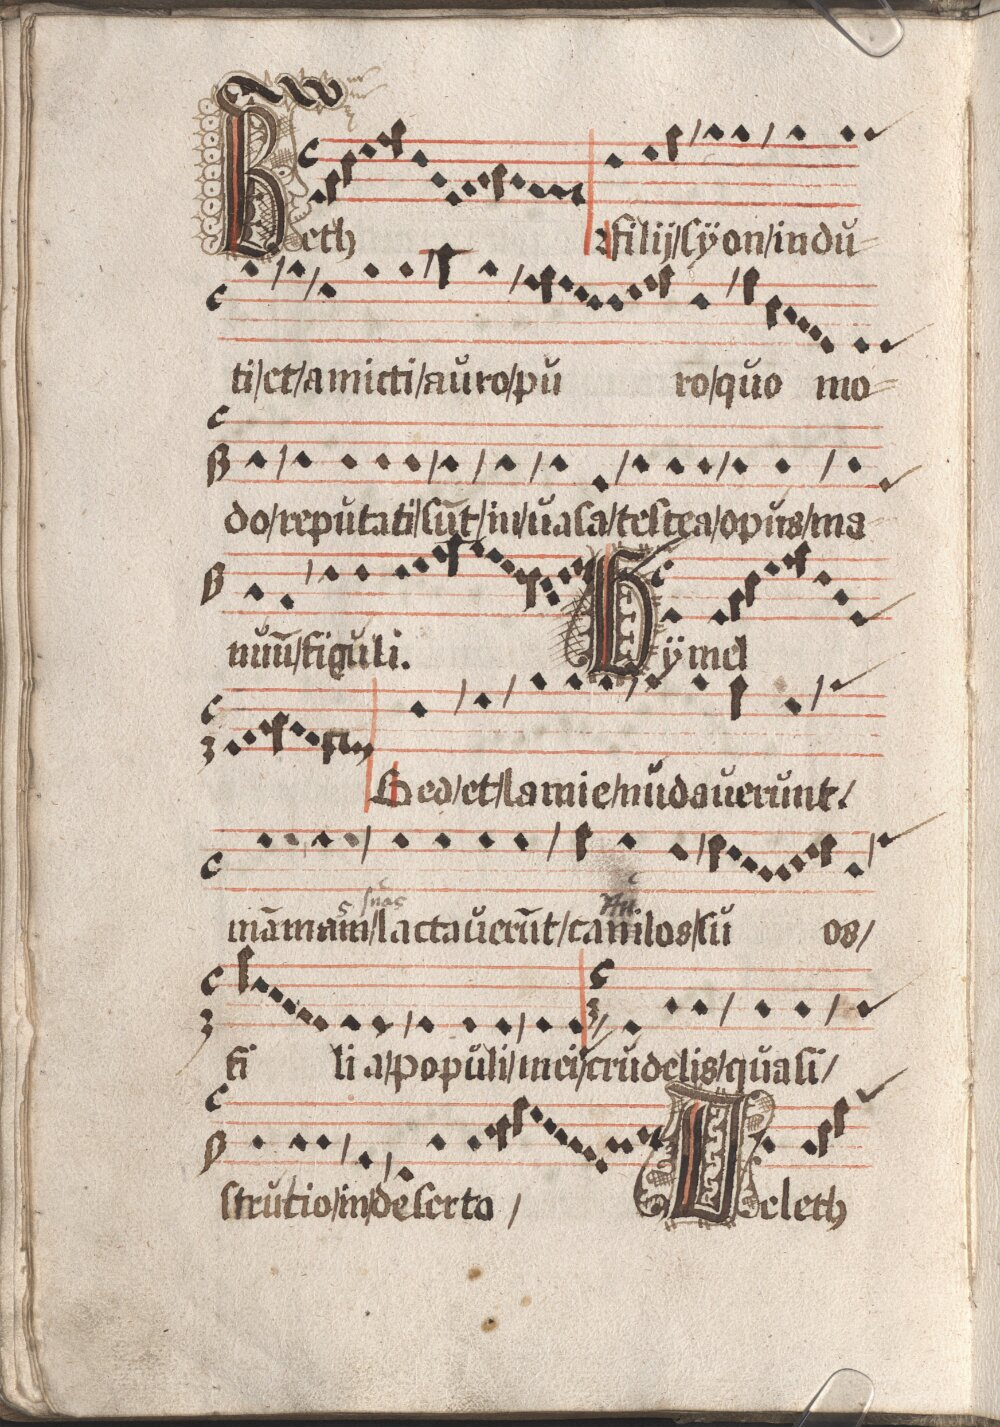 Beth filij/syon/indu=
ti/et/amicti/auro/pu ro/quo mo=
do/reputati/sūt/in/uasa/testea/opus/ma
nuū/figuli. Gymel
Sed/et/lamie/nudauerunt/
māmam/lactauerūt/catulos/su os/
fi li a/populi/mei/crudelis/quasi/
strutio/in/deserto/ Deleth